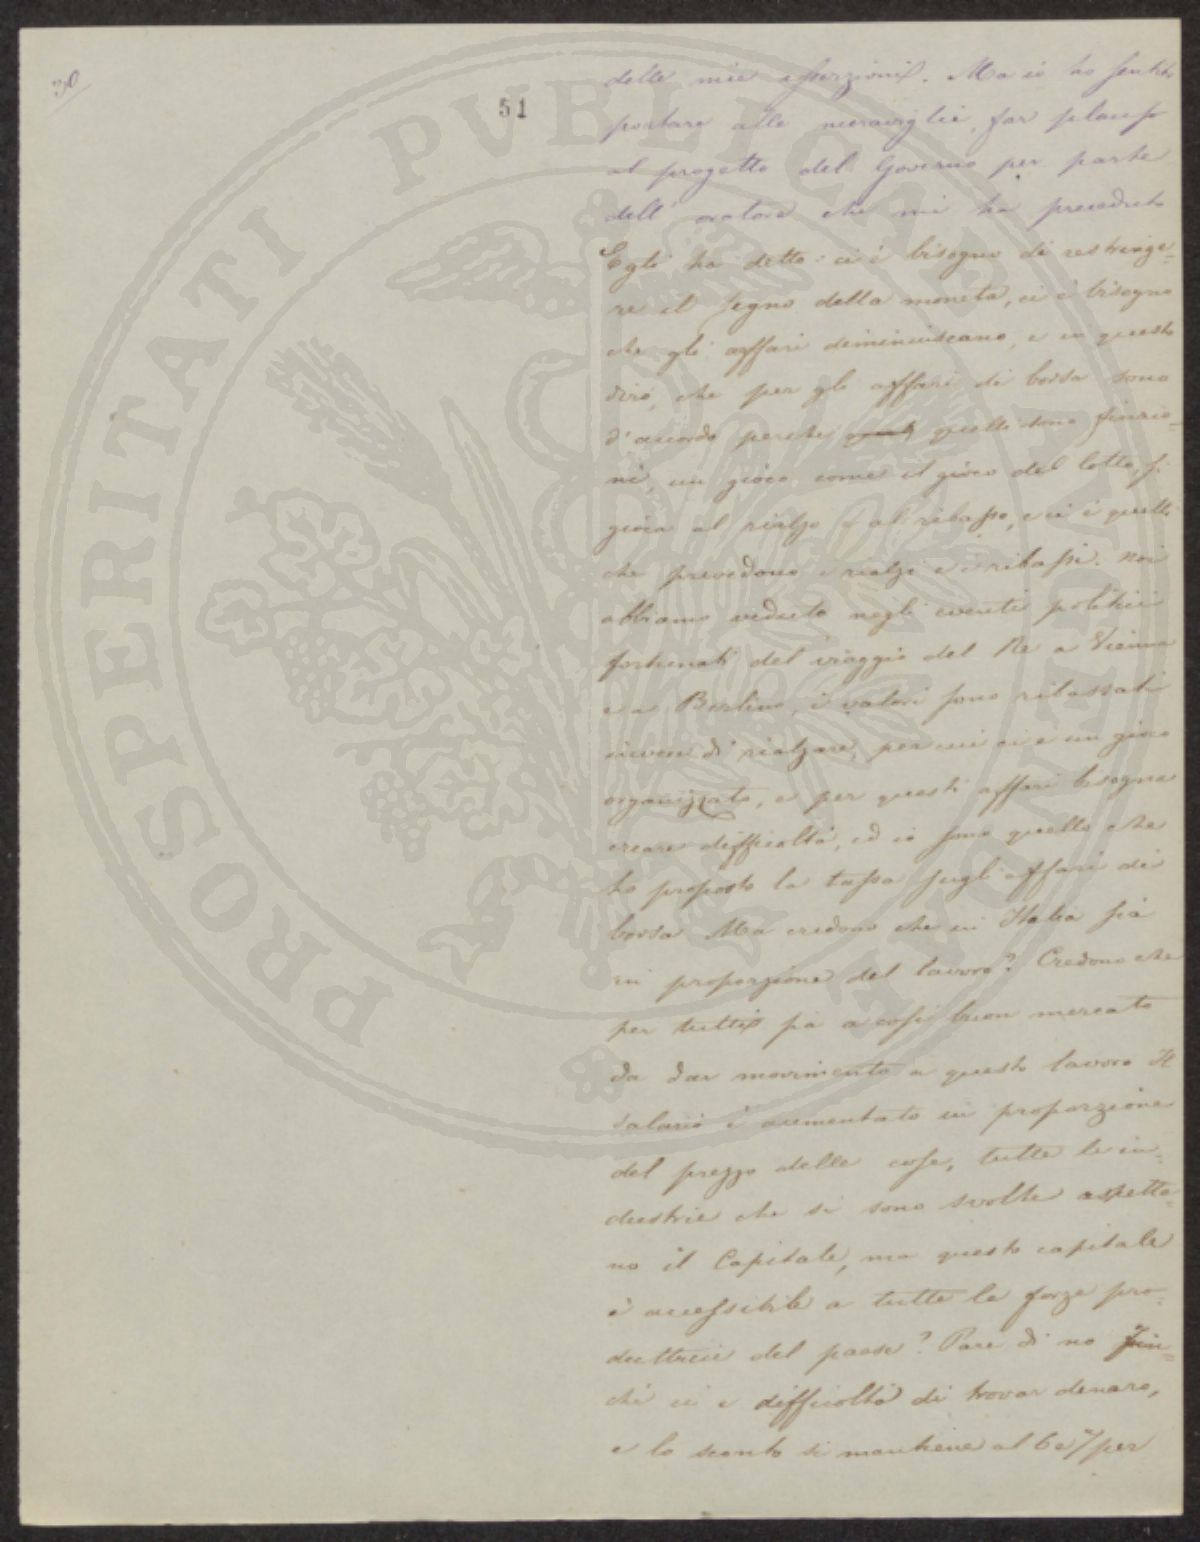 30
51
delle mie asserzioni. Ma io ho sentito
portare alle meraviglie, far plauso
al progetto del Governo per parte
dell'oratore che mi ha preceduto
Egli ha detto: ci è bisogno di restringe-
re il segno della moneta, ci è bisogno
che gli affari diminuiscano, e in questo
dirò, che per gli affari di borsa sono
d'accordo perchè quelli sono finzio-
ni, un gioco come il gioco del lotto, si
gioca al rialzo e al ribasso, e ci è quelli
che prevedono i rialzi e i ribassi. Noi
abbiamo veduto negli eventi politici
fortunati del viaggio del Re a Vienna
e a Berlino, i valori sono ribassati
invece di rialzare, per cui ci è un gioco
organizzato, e per questi affari bisogna
creare difficoltà, ed io sono quello che
ho proposto la tassa sugli affari di
borsa. Ma credono che in Italia sia
in proporzione del lavoro? Credono che
per tutti sia a così buon mercato
da dar movimento a questo lavoro Il
salario è aumentato in proporzione
del prezzo delle cose, tutte le in-
dustrie che si sono svolte aspetta-
no il Capitale, ma questo capitale
è accessibile a tutte le forze pro-
duttrici del paese? Pare di no Fin-
chè ci è difficoltà di trovar denaro,
e lo sconto si mantiene al 6 e 7 per
PROSPERITATI PVBLICAE AVGENDAE